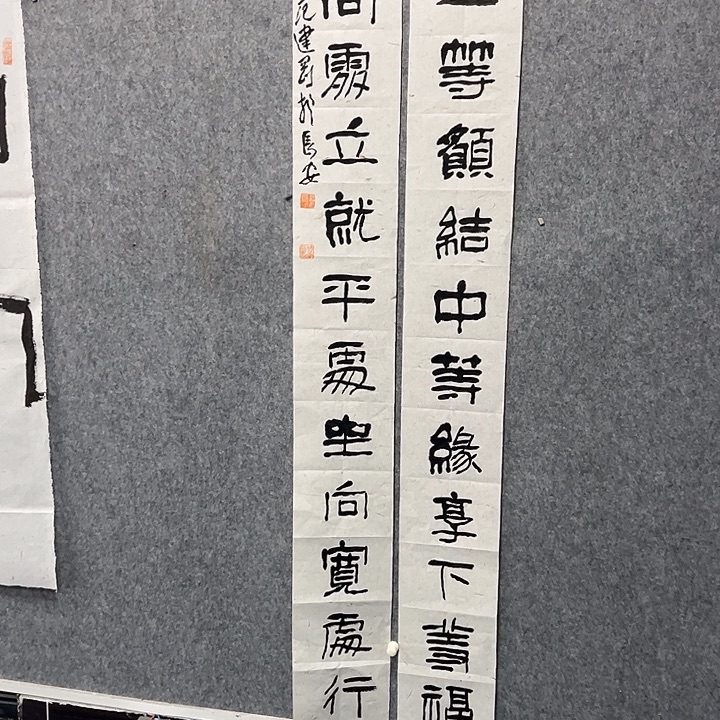 等願結中等緣享下等福
處立就平處坐向寬處行
建於長安